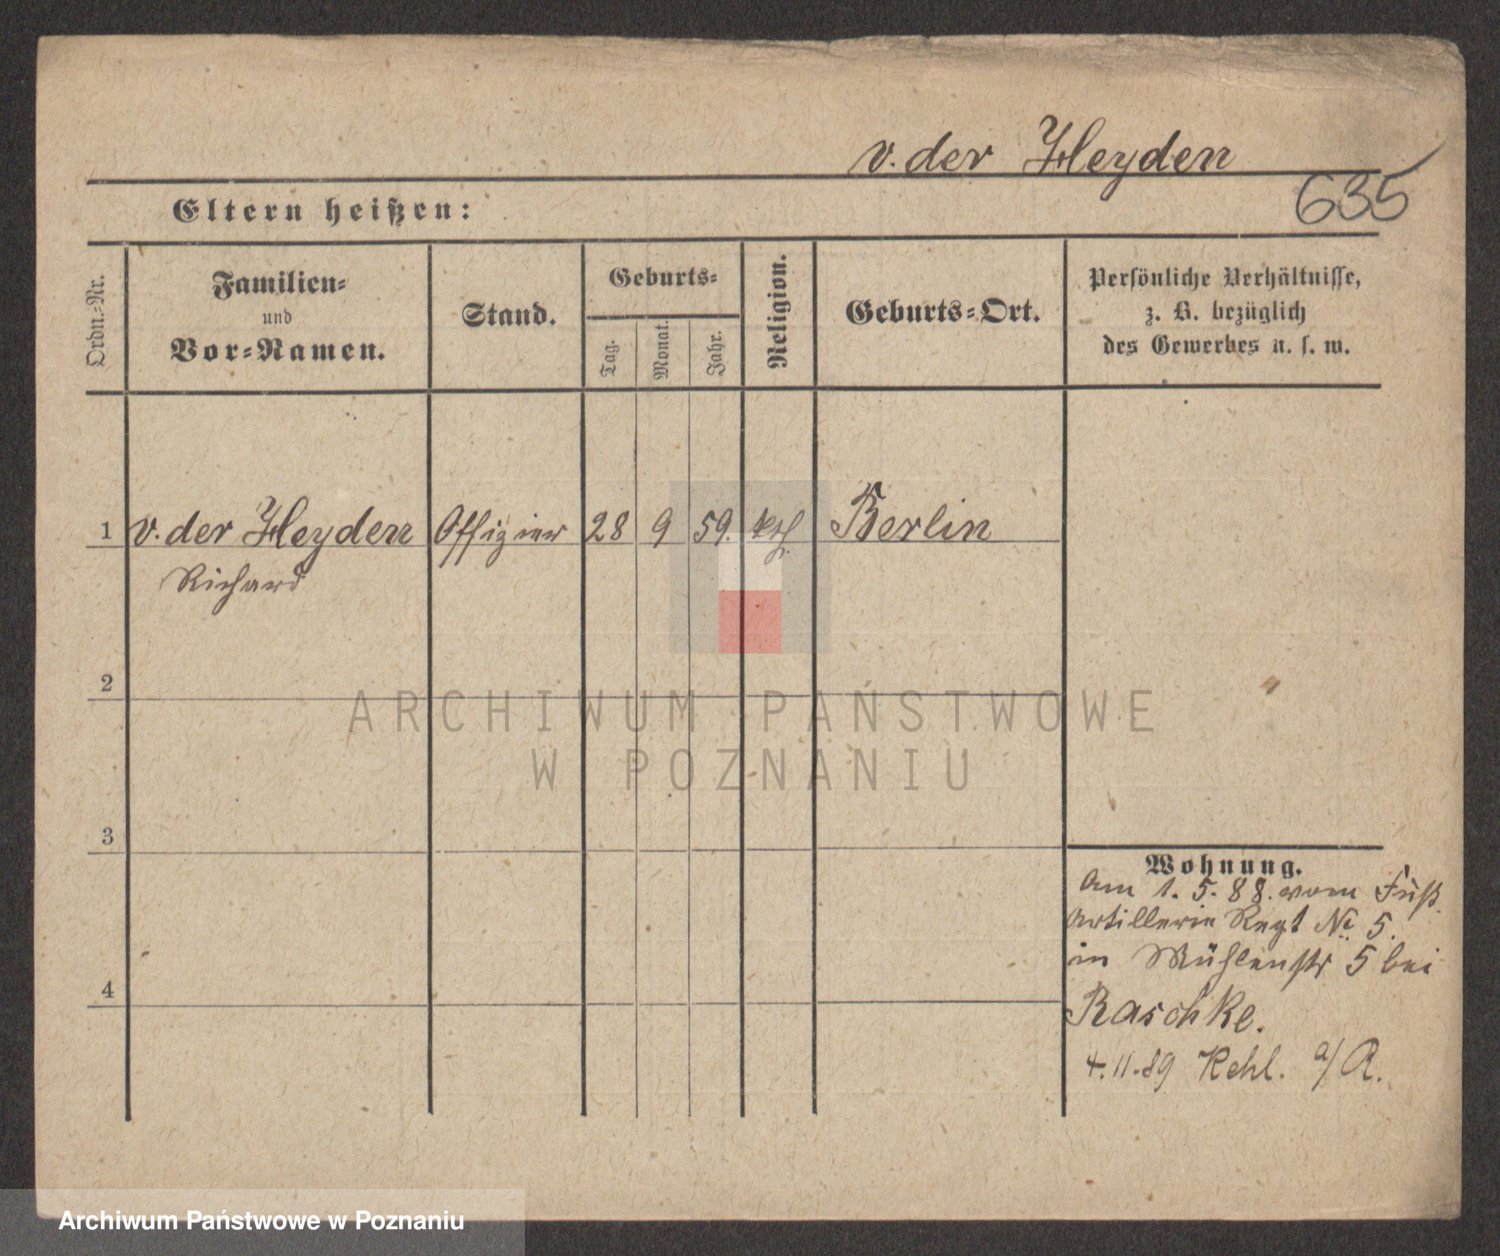 v. der Heyden
635
Eltern heißen:
Ordn.-Nr.
Familien-
und
Vor-Namen.
Stand.
Geburts-
Tag.
Monat.
Jahr.
Religion.
Geburts-Ort.
Persönliche Verhältnisse,
z. B. bezüglich
des Gewerbes u. s. w.
1 v. der Heyden Offizier 28 9 59. kth. Berlin
Richard
2
3
4
Wohnung.
Am 1. 5. 88. vom Fuß
Artillerie Regt No 5.
in Mühlenstr 5 bei
Raschke.
4. 11. 89 Kehl. a/R.
ARCHIWUM PAŃSTWOWE
W POZNANIU
Archiwum Państwowe w Poznaniu